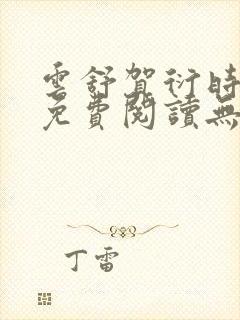 雲舒賀衍時
免費閱讀無
丁雷